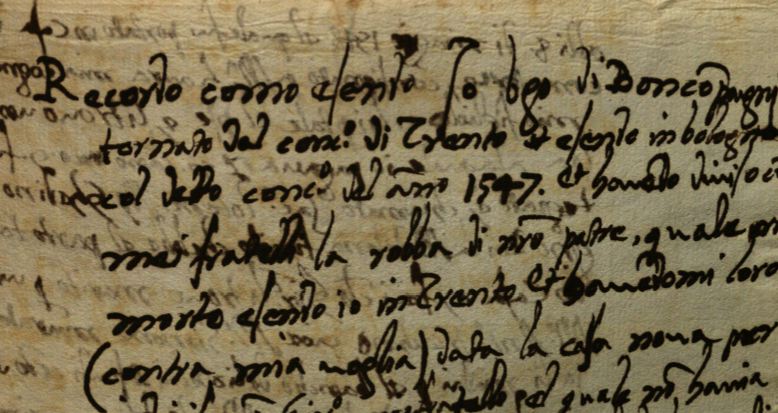 Recordo como essendo Io Ugo di Boncōpagni
tornato dal conc.º di Trento et essendo in bologna
col detto conc.º del año 1547. et havendo diviso
mei fratelli la robba di nrō patre, quale
morto essendo io in Trento et havendomi loro
(contra mia voglia) data la casa nova per
pel quale nō havia